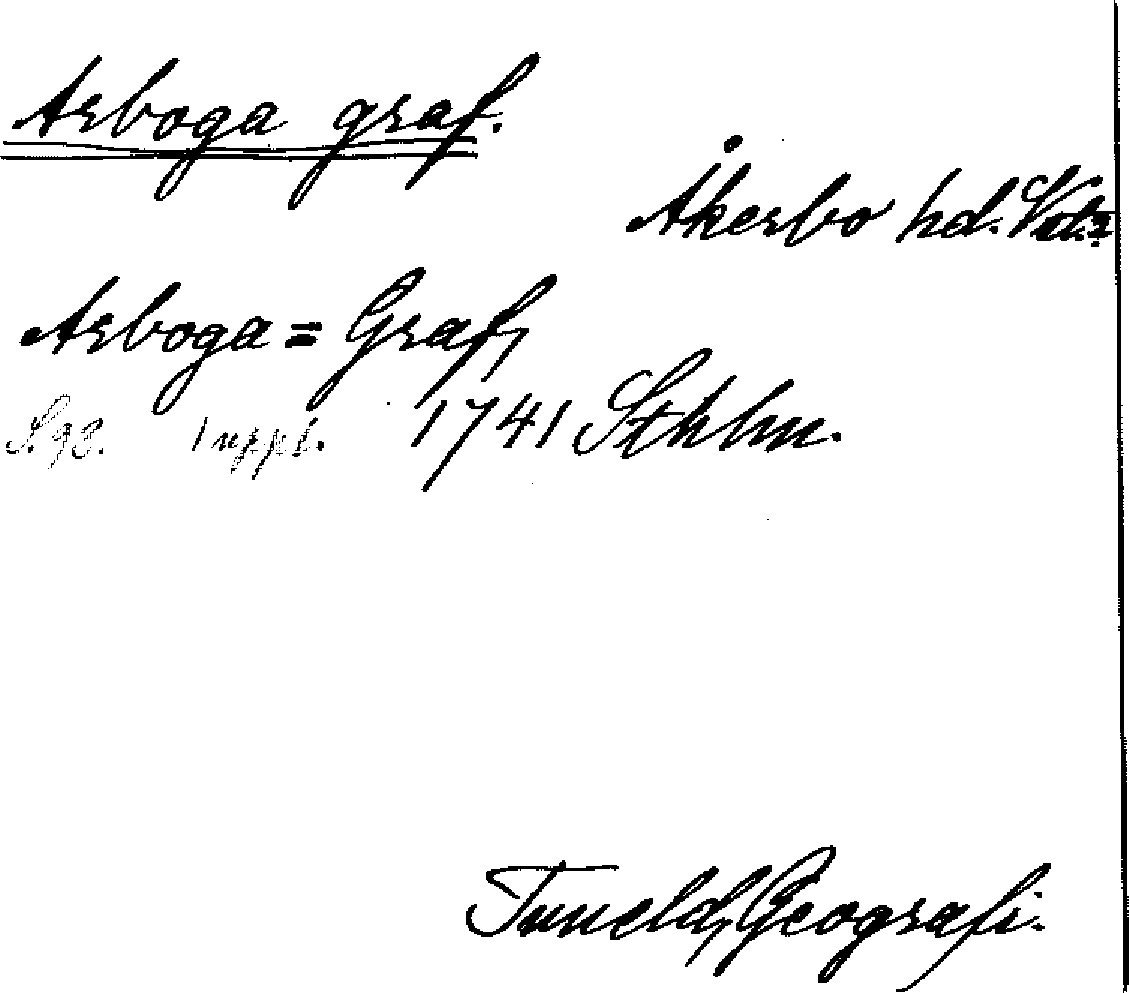 Arboga graf.
Åkerbo hd. Vstm.
Arboga = Graf,
S. 98. 1 uppl. 1741 Sthlm.
Tuneld, Geografi.